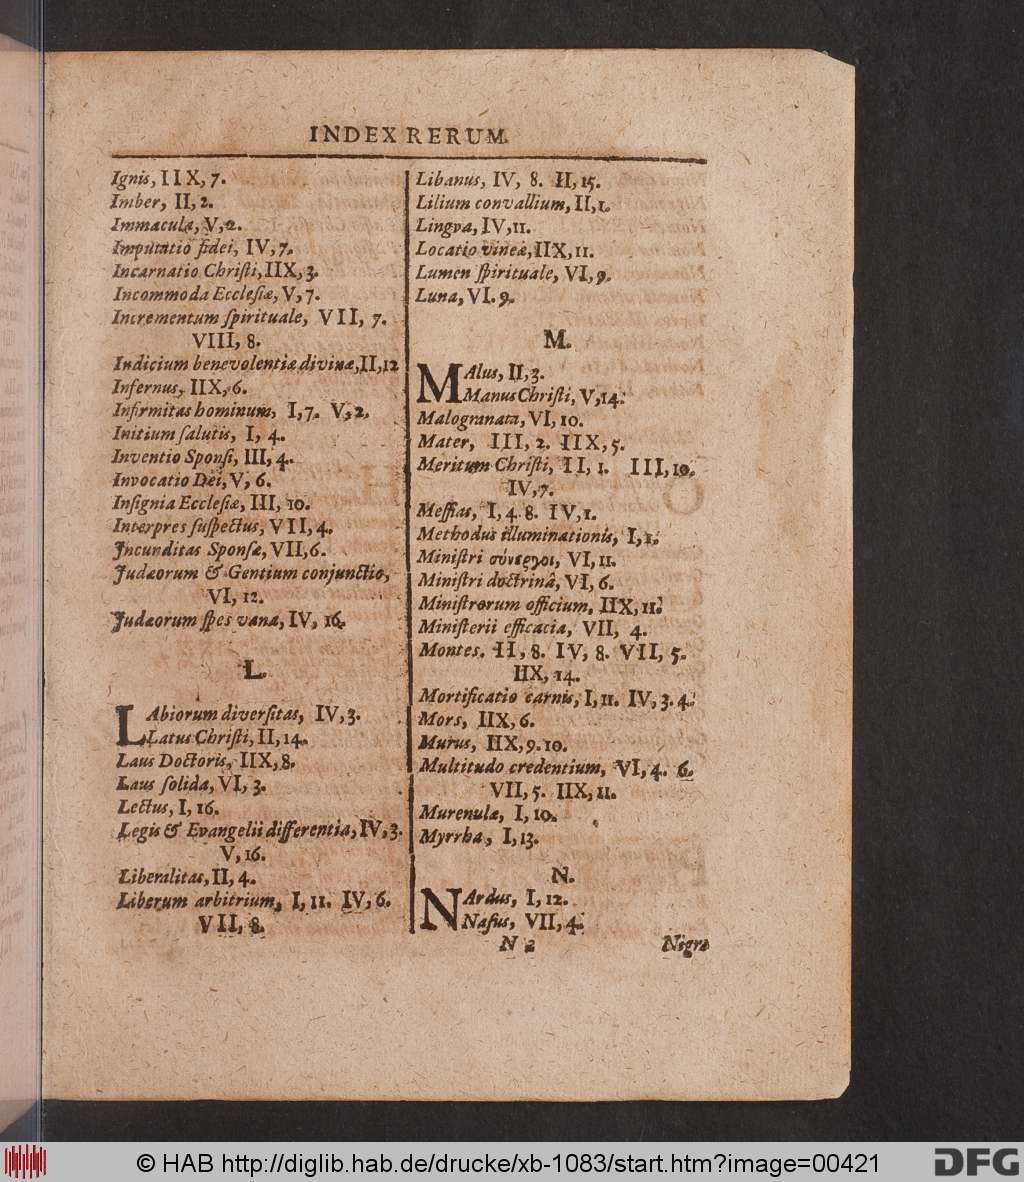 INDEX RERUM.
Ignis, IIX, 7.
Imber, II, 2.
Immacula, V, 2.
Imputatio fidei, IV, 7.
Incarnatio Chriſti, IIX, 3.
Incommoda Eccleſiæ, V, 7.
Incrementum ſpirituale, VII, 7.
VIII, 8.
Indicium benevolentiæ divinæ, II, 12
Infernus, IIX, 6.
Infirmitas hominum, I, 7. V, 2.
Initium ſalutis, I, 4.
Inventio Sponſi, III, 4.
Invocatio Dei, V, 6.
Inſignia Eccleſiæ, III, 10.
Interpres ſuſpectus, VII, 4.
Jucunditas Sponſæ, VII, 6.
Judæorum & Gentium conjunctio,
VI, 12.
Judæorum ſpes vana, IV, 16.
L.
LAbiorum diverſitas, IV, 3.
Latus Chriſti, II, 14.
Laus Doctoris, IIX, 8.
Laus ſolida, VI, 3.
Lectus, I, 16.
Legis & Evangelii differentia, IV, 3.
V, 16.
Liberalitas, II, 4.
Liberum arbitrium, I, 11. IV, 6.
VII, 8.
Libanus, IV, 8. II, 15.
Lilium convallium, II, 1.
Lingva, IV, 11.
Locatio vineæ, IIX, 11.
Lumen ſpirituale, VI, 9.
Luna, VI. 9.
M.
MAlus, II, 3.
Manus Chriſti, V, 14.
Malogranata, VI, 10.
Mater, III, 2. IIX, 5.
Meritum Chriſti, II, 1. III, 10.
IV, 7.
Meſſias, I, 4. 8. IV, 1.
Methodus illuminationis, I, 1.
Miniſtri σύνεργοι, VI, 11.
Miniſtri doctrinâ, VI, 6.
Miniſtrorum officium, IIX, 11.
Miniſterii efficacia, VII, 4.
Montes. II, 8. IV, 8. VII, 5.
IIX, 14.
Mortificatio carnis, I, 11. IV, 3. 4.
Mors, IIX, 6.
Murus, IIX, 9. 10.
Multitudo credentium, VI, 4. 6.
VII, 5. IIX, 11.
Murenula, I, 10.
Myrrha, I, 13.
N.
NArdus, I, 12.
Naſus, VII, 4.
N 2 Nigre
© HAB http://diglib.hab.de/drucke/xb-1083/start.htm?image=00421
DFG